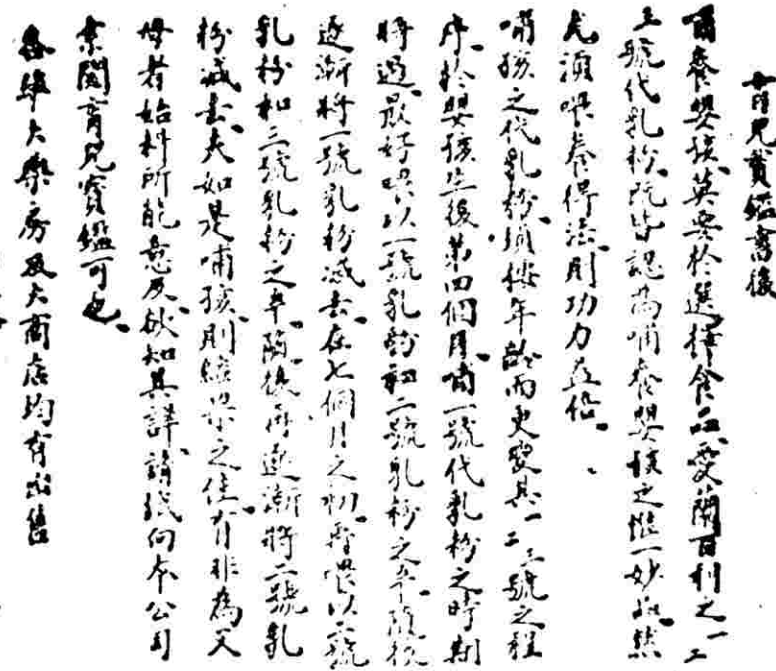 育兒寶鑑書後
哺養嬰孩莫要於選擇食品愛蘭百利之一二
三號代乳粉既皆認為哺養嬰孩之惟一妙品然
尤須喂養得法則功力益倍
哺孩之代乳粉須按年齡而更變其一二三號之程
序於嬰孩生後第四個月哺一號代乳粉之時期
將過最好喂以一號乳粉和二號乳粉之半隨後
逐漸將一號乳粉減去在七個月之初再喂以二號
乳粉和三號乳粉之半隨後再逐漸將二號乳
粉減去夫如是哺孩則結果之佳有非為父
母者始料所能意及欲知其詳請紙向本公司
索閱育兒寶鑑可也
各埠大藥房及大商店均有出售